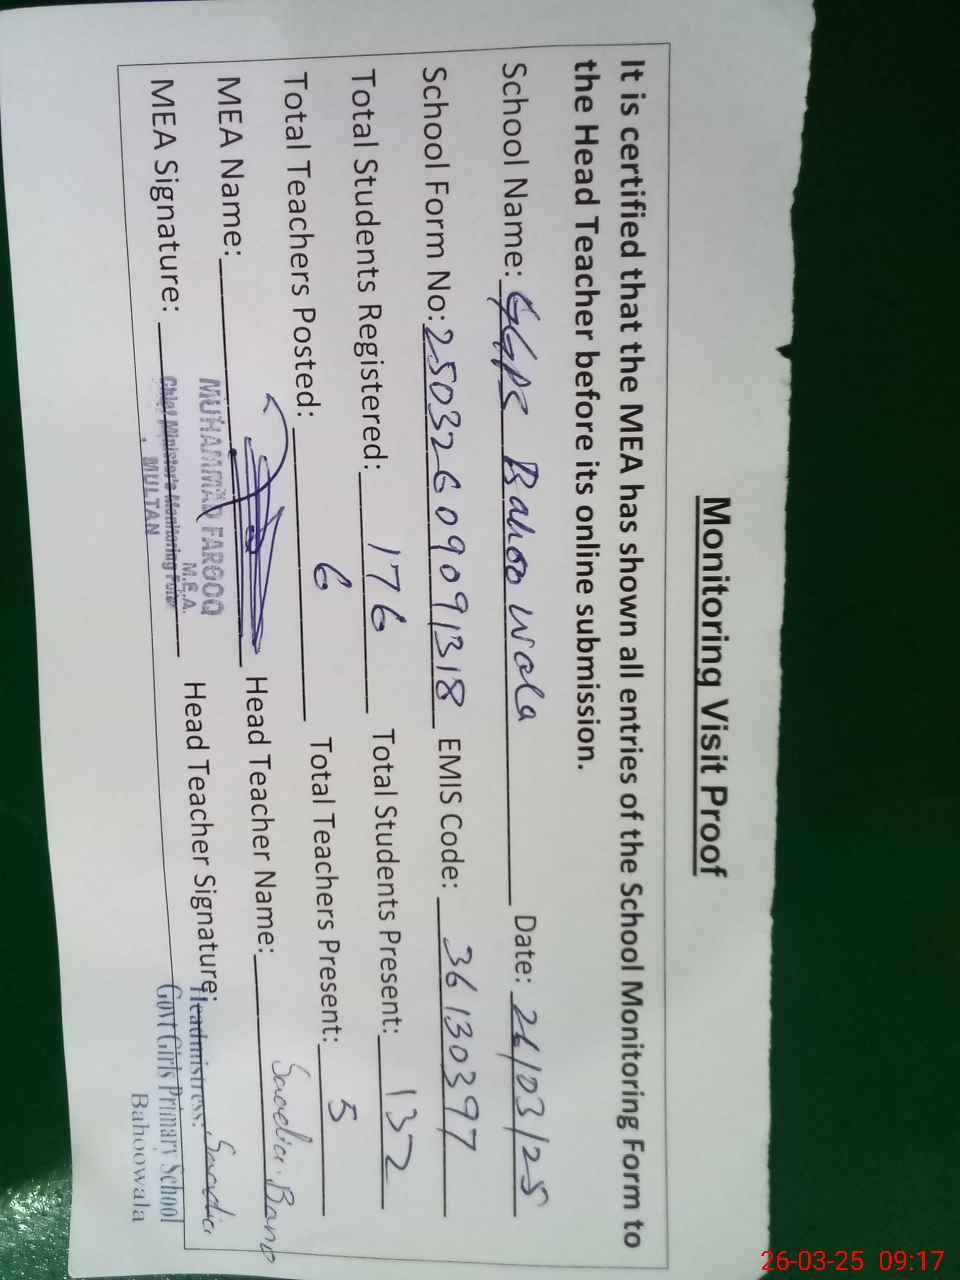 Monitoring Visit Proof
It is certified that the MEA has shown all entries of the School Monitoring Form to
the Head Teacher before its online submission.
School Name: GGPS Bahoo Wala Date: 26/03/25
School Form No: 25032609091318 EMIS Code: 36130397
Total Students Registered: 176 Total Students Present: 132
Total Teachers Posted: 6 Total Teachers Present: 5
MEA Name: Head Teacher Name: Saadia Bano
MUHAMMAD FAROOQ
M.E.A.
MEA Signature: Head Teacher Signature: Saadia
Chief Minister's Monitoring Force
MULTAN
Headmistress:
Govt Girls Primary School
Bahoowala
26-03-25 09:17